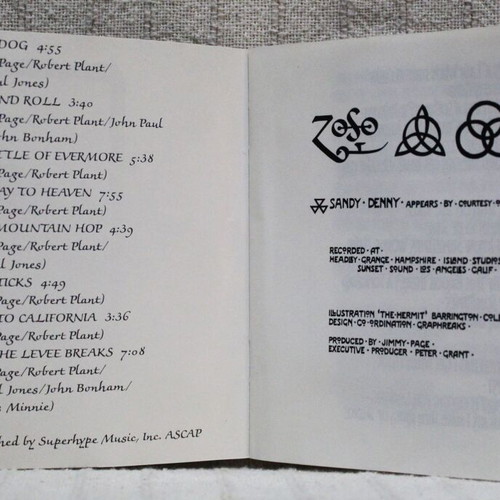 DOG 4:55
Page/Robert Plant/
Jones)
ND ROLL 3:40
Page/Robert Plant/John Paul
hn Bonham)
TTLE OF EVERMORE 5:38
Page/Robert Plant)
AY TO HEAVEN 7:55
Page/Robert Plant)
MOUNTAIN HOP 4:39
Page/Robert Plant/
l Jones)
TICKS 4:49
Page/Robert Plant)
TO CALIFORNIA 3:36
Page/Robert Plant)
HE LEVEE BREAKS 7:08
Page/Robert Plant/
l Jones/John Bonham/
Minnie)
hed by Superhype Music, Inc. ASCAP
SANDY · DENNY · APPEARS · BY · COURTESY ·
RECORDED · AT ·
HEADLEY · GRANGE · HAMPSHIRE · ISLAND · STUDIOS
SUNSET · SOUND · LOS · ANGELES · CALIF ·
ILLUSTRATION 'THE · HERMIT' BARRINGTON · COL
DESIGN · CO-ORDINATION · GRAPHREAKS ·
PRODUCED · BY · JIMMY · PAGE ·
EXECUTIVE · PRODUCER · PETER · GRANT ·